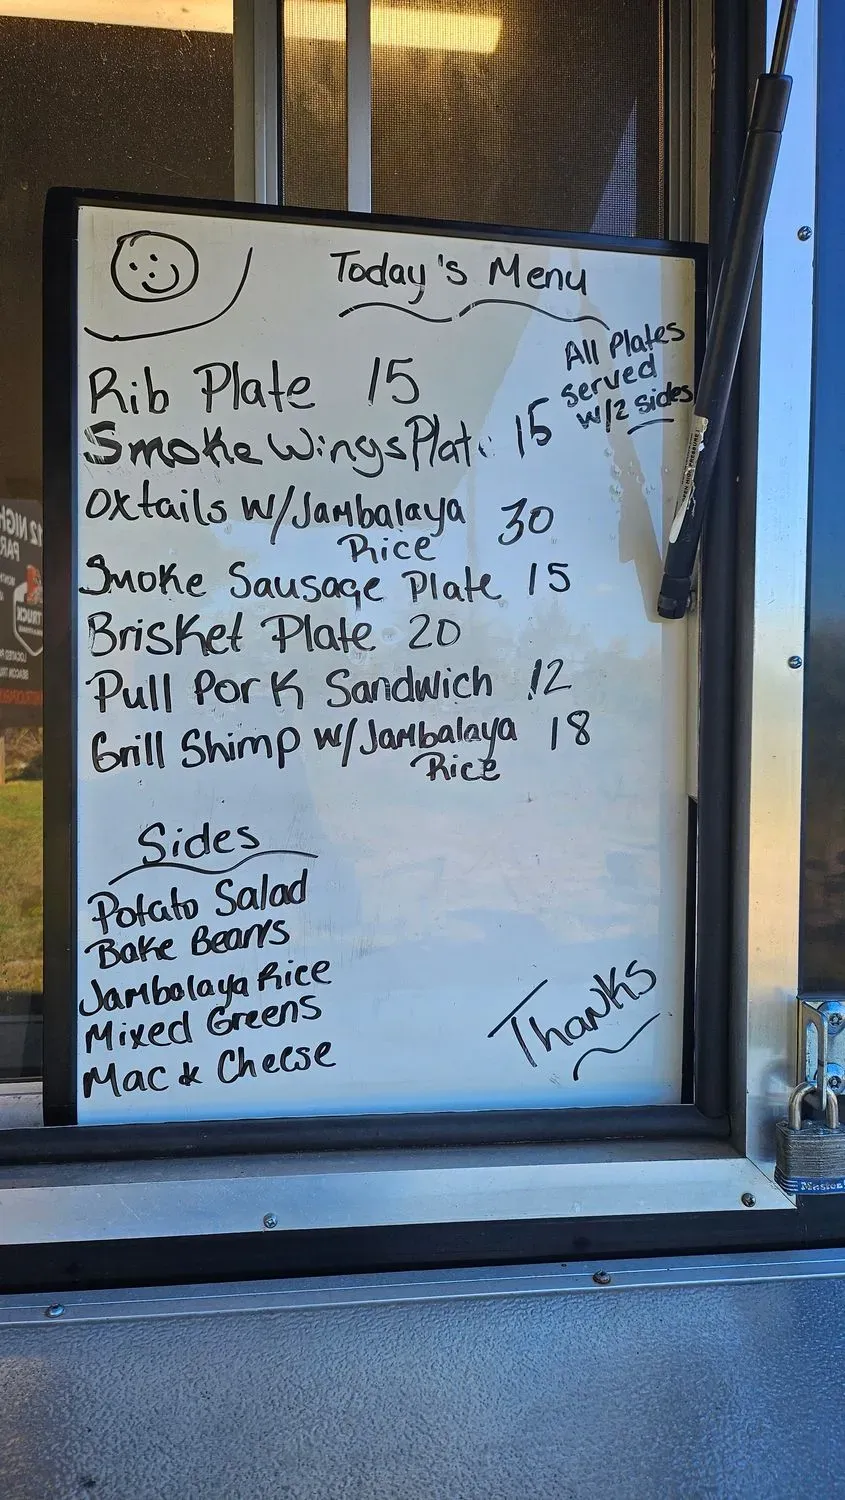 Today's Menu
All Plates
served
w/2 sides
Rib Plate 15
Smoke Wings Plate 15
Oxtails w/Jambalaya 30
Rice
Smoke Sausage Plate 15
Brisket Plate 20
Pull Pork Sandwich 12
Grill Shimp w/Jambalaya 18
Rice
Sides
Potato Salad
Bake Beans
Jambalaya Rice
Mixed Greens
Mac & Cheese
Thanks
Master